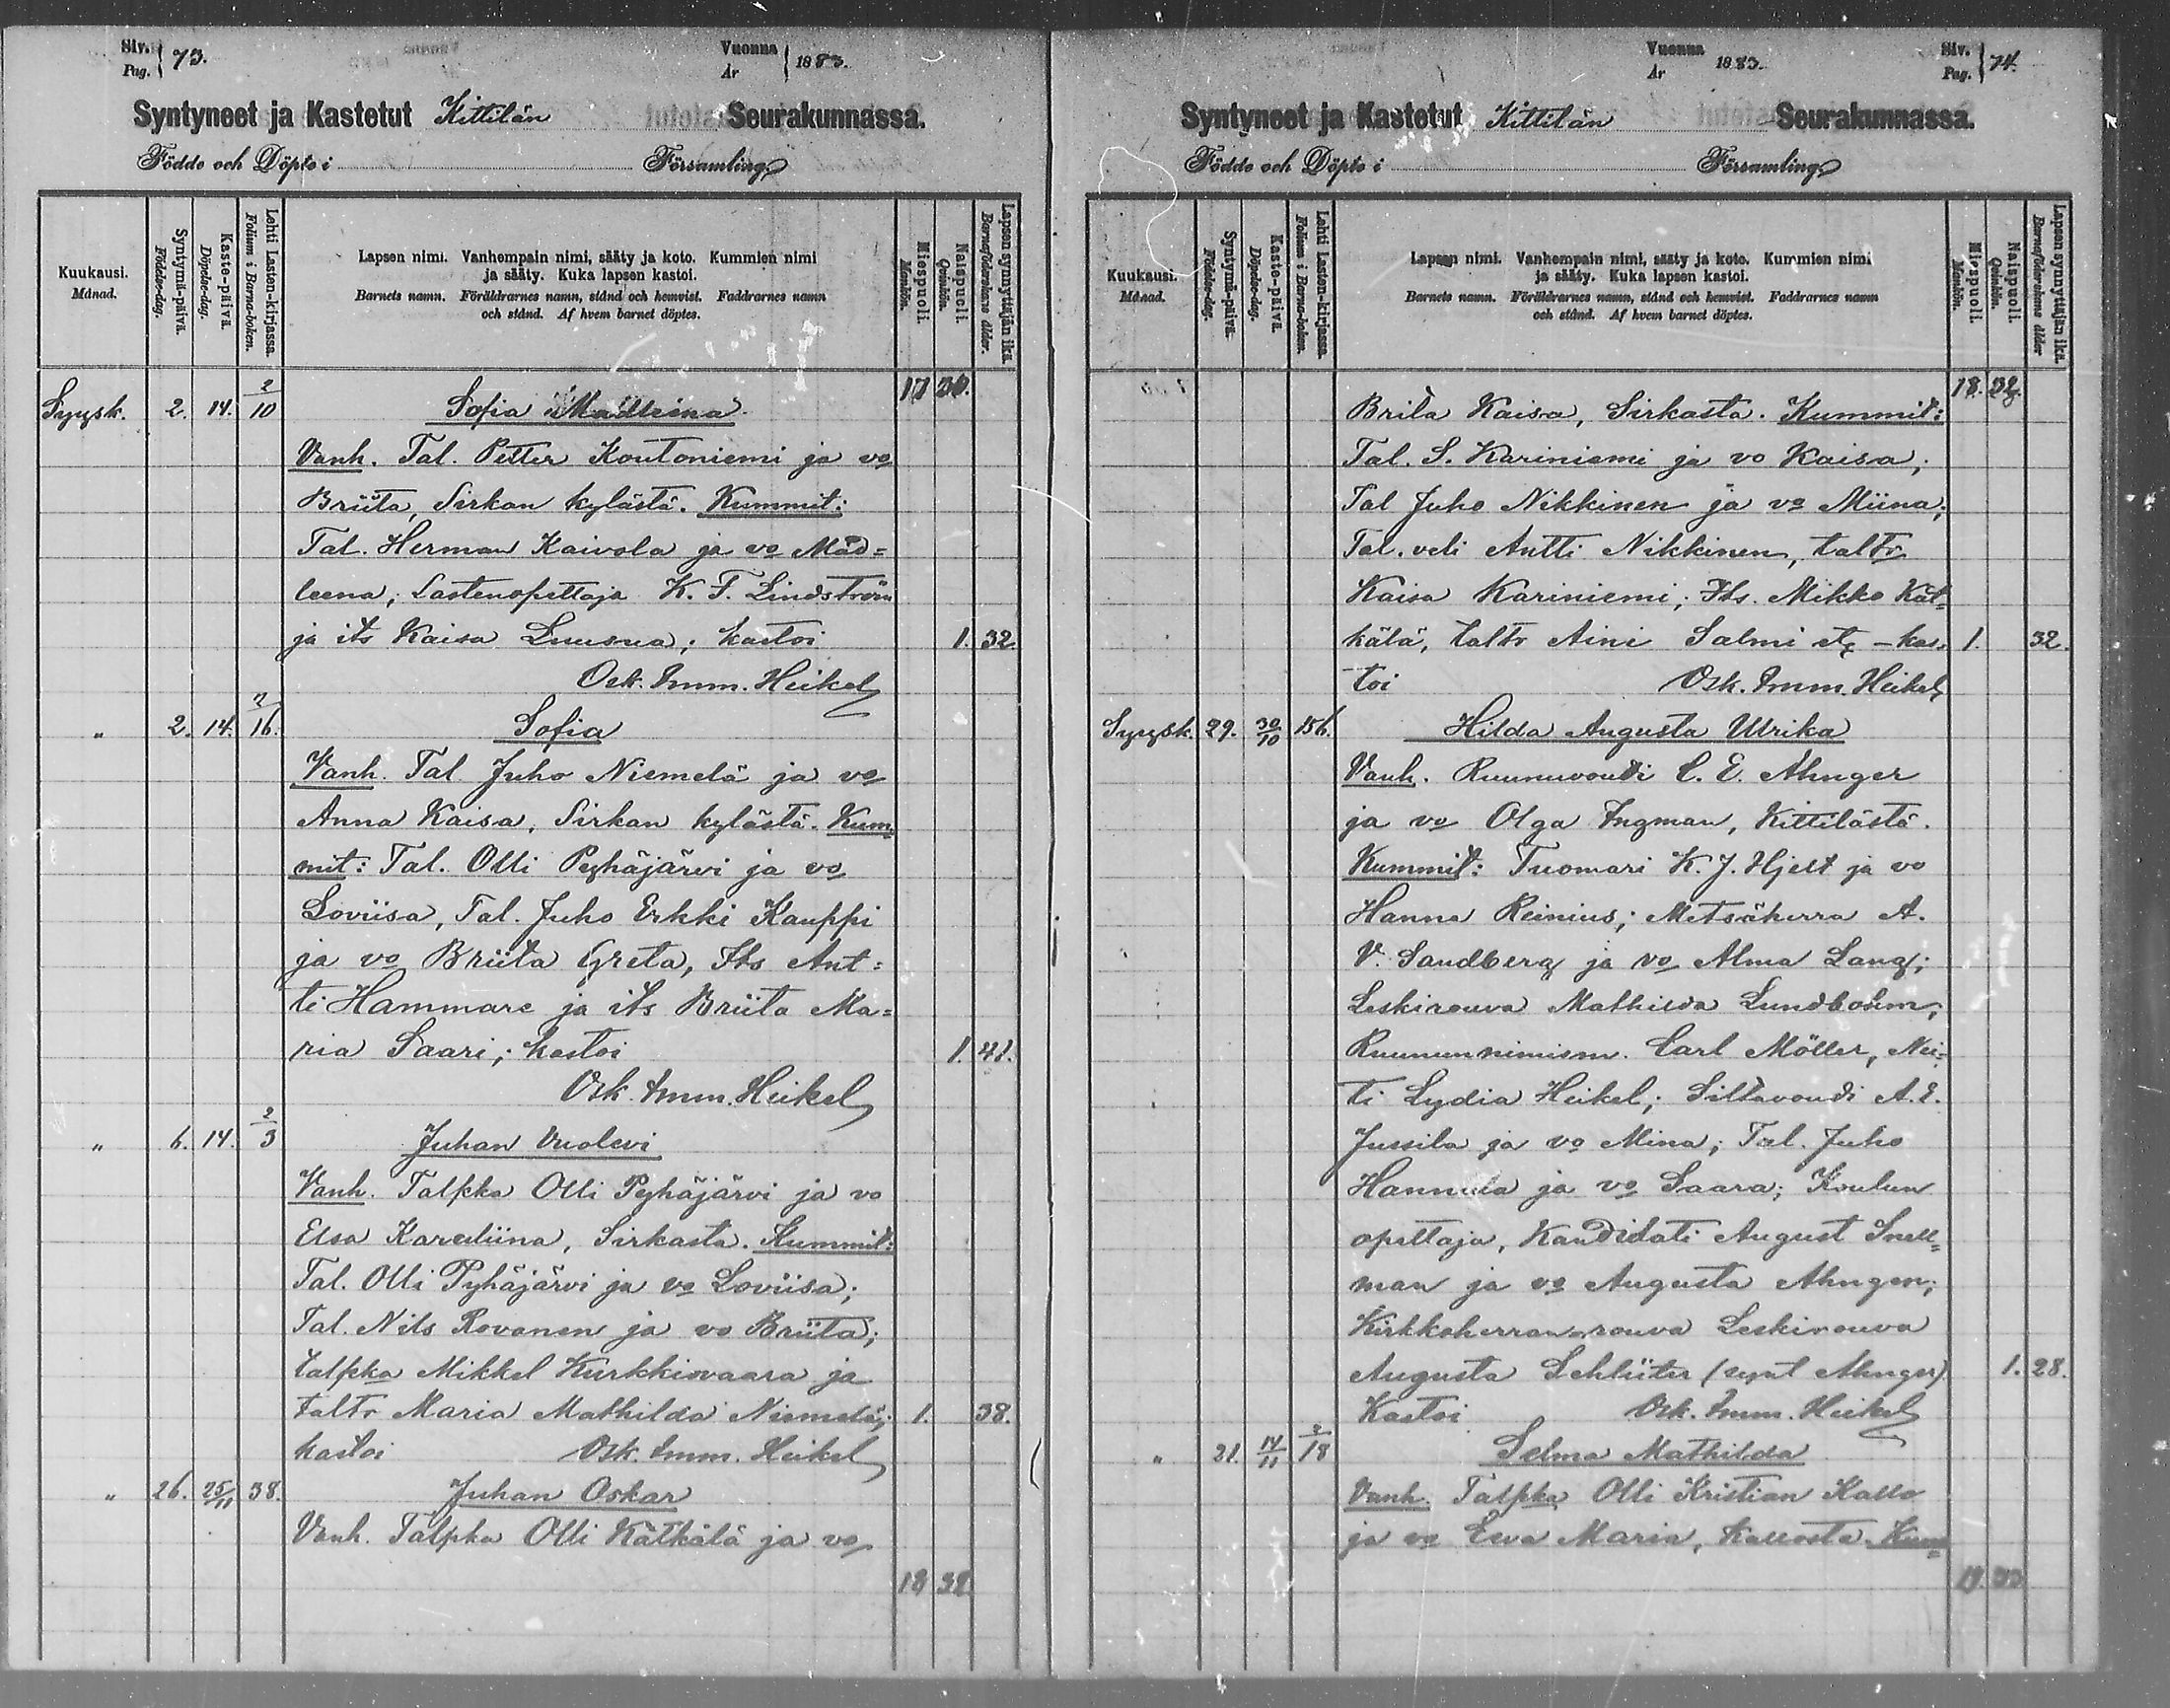 Siv. Pag. 73.
Vuonna År 1883.
Syntyneet ja Kastetut Kittilän Seurakunnassa.
Födde och Döpte i Församling
Kuukausi. Månad.
Syntymä-päivä. Födelse-dag.
Kaste-päivä. Döpelse-dag.
Lehti Lasten-kirjassa. Folium i Barna-boken.
Lapsen nimi. Vanhempain nimi, sääty ja koto. Kummien nimi
ja sääty. Kuka lapsen kastoi.
Barnets namn. Föräldrarnes namn, stånd och hemvist. Faddrarnes namn
och stånd. Af hvem barnet döptes.
Miespuoli. Mankön.
Naispuoli. Qvinkön.
Lapsen synnyttäjän ikä. Barnaföderskans ålder.
17 30.
Syysk. 2. 14. 2/10 Sofia Madleena.
Vanh. Tal. Petter Koutoniemi ja vo
Briita, Sirkan kylästä. Kummit:
Tal. Herman Kaivola ja vo Mad=
leena; Lastenopettaja K. F. Lindström
ja its Kaisa Luusua; kastoi 1. 32.
Osk. Imm. Heikel
" 2. 14. 2/16. Sofia
Vanh. Tal. Juho Niemelä ja vo
Anna Kaisa, Sirkan kylästä. Kum=
mit: Tal. Olli Pyhäjärvi ja vo
Loviisa, Tal. Juho Erkki Kauppi
ja vo Briita Greta, Its Ant=
ti Hammare ja its Briita Ma=
ria Saari; kastoi 1. 41.
Osk. Imm. Heikel
" 6. 14. 2/3 Juhan Vuolevi
Vanh. Talpka Olli Pyhäjärvi ja vo
Elsa Karoliina, Sirkasta. Kummit:
Tal. Olli Pyhäjärvi ja vo Loviisa;
Tal. Nils Rovanen ja vo Briita;
talpka Mikkel Kurkkiovaara ja
taltr Maria Mathilda Niemelä; 1. 38.
kastoi Osk. Imm. Heikel
" 26. 25/11 38. Juhan Oskar
Vanh. Talpka Olli Kätkälä ja vo
18 32.
Vuonna År 1883.
Siv. Pag. 74.
Syntyneet ja Kastetut Kittilän Seurakunnassa.
Födde och Döpte i Församling
Kuukausi. Månad.
Syntymä-päivä. Födelse-dag.
Kaste-päivä. Döpelse-dag.
Lehti Lasten-kirjassa. Folium i Barna-boken.
Lapsen nimi. Vanhempain nimi, sääty ja koto. Kummien nimi
ja sääty. Kuka lapsen kastoi.
Barnets namn. Föräldrarnes namn, stånd och hemvist. Faddrarnes namn
och stånd. Af hvem barnet döptes.
Miespuoli. Mankön.
Naispuoli. Qvinkön.
Lapsen synnyttäjän ikä. Barnaföderskans ålder
18. 32.
Brita Kaisa, Sirkasta. Kummit:
Tal. S. Kariniemi ja vo Kaisa;
Tal Juho Nikkinen ja vo Miina;
Tal. veli Antti Nikkinen, taltr
Kaisa Kariniemi; Its. Mikko Kät=
kälä, taltr Aini Salmi – kas= 1. 32.
toi Osk. Imm. Heikel
Syysk. 29. 30/10 156. Hilda Augusta Ulrika
Vanh. Ruunuvouti C. E. Ahnger
ja vo Olga Ingman, Kittilästä.
Kummit: Tuomari K. J. Hjelt ja vo
Hanna Reinius; Metsäherra A.
V. Sandberg ja vo Alma Lang;
Leskirouva Mathilda Lundbohm;
Ruununnimism. Carl Möller, Nei=
ti Lydia Heikel; Siltavouti A. E.
Jussila ja vo Mina; Tal. Juho
Hannula ja vo Saara; Koulun
opettaja, Kandidati August Snell=
man ja vo Augusta Ahnger;
Kirkkoherran rouva Leskirouva
Augusta Schlüter (synt Ahnger) 1. 28.
Kastoi Osk. Imm. Heikel
" 21. 14/11 2/18 Selma Mathilda
Vanh. Talpka Olli Kristian Kallo
ja vo Ewa Maria, Kallosta. Kum=
19. 33